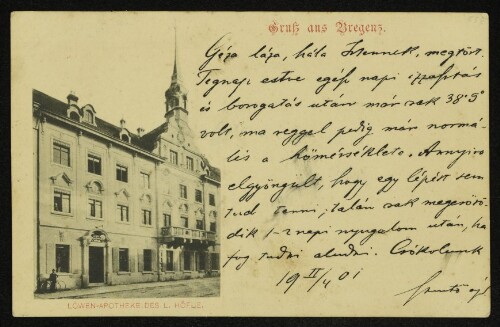 Gruß aus Bregenz.
Géza láza, hála Istennek, megtört.
Tegnap estve egész napi izzasztás
és borogatás után már csak 38·5°
volt, ma reggel pedig már normá-
lis a hőmérséklete. Annyira
elgyöngült, hogy egy lépést sem
tud tenni, talán csak megerősö-
dik 1-2 napi nyugalom után, ha
fog tudni aludni. Csókolunk
19 II/4 01
LÖWEN-APOTHEKE DES L. HÖFLE.